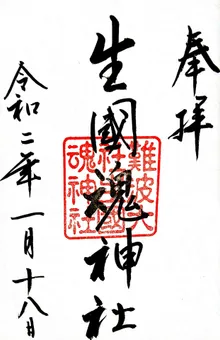 奉拝
生國魂神社
難波大社生國魂神社
令和二年一月十八日